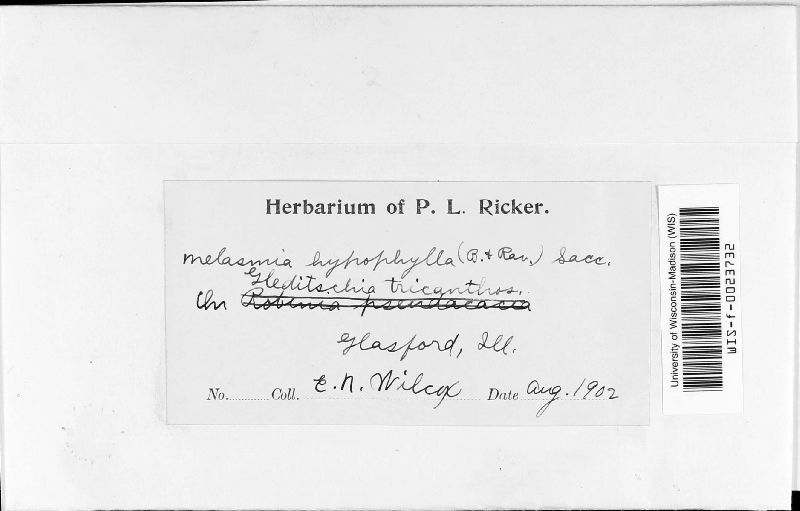 Herbarium of P. L. Ricker.
Melasmia hypophylla (B. & Rav.) Sacc.
Gleditschia tricanthos.
On Robinia pseudacacia
Glasford, Ill.
No. Coll. E. N. Wilcox Date Aug. 1902
University of Wisconsin-Madison (WIS)
WIS-f-0023735